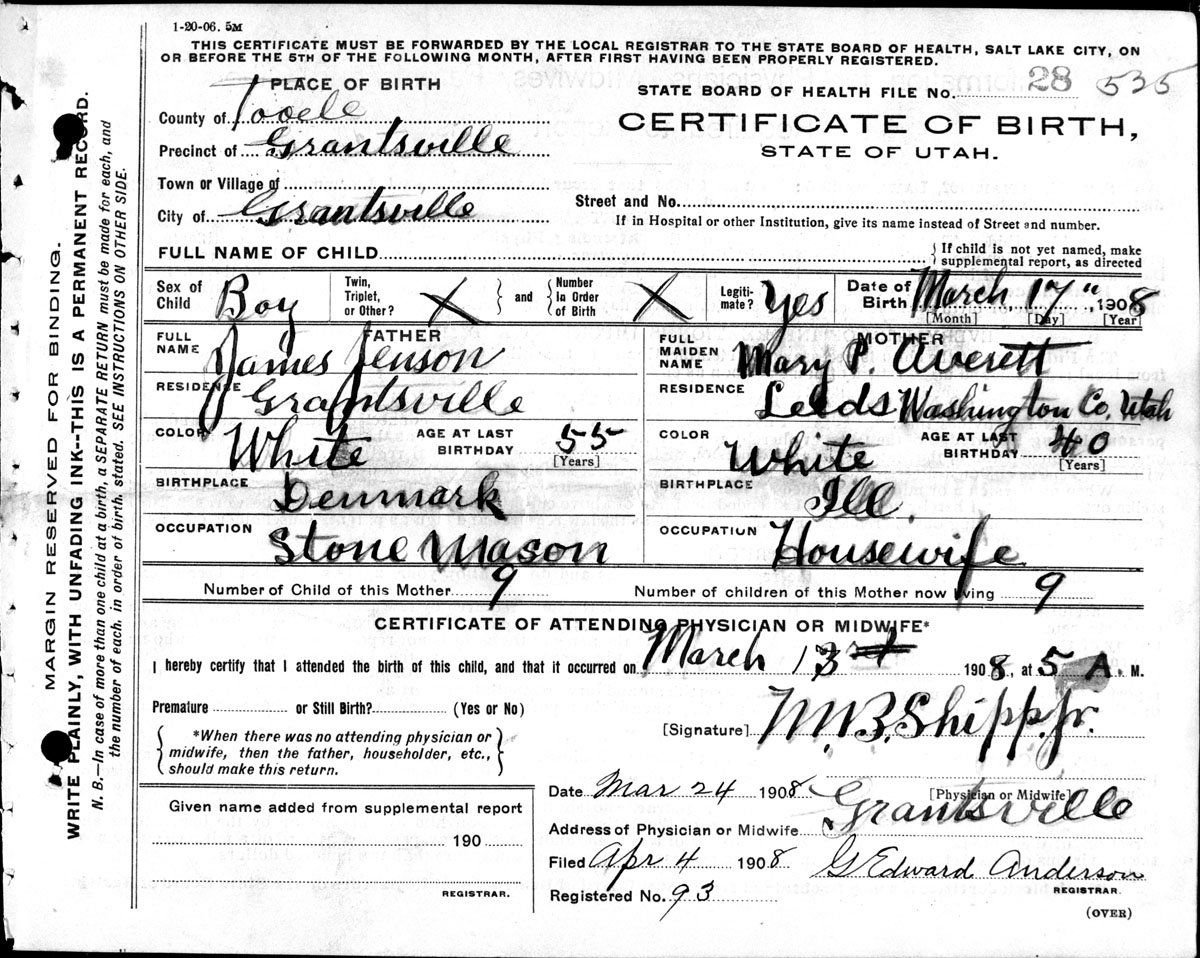 1-20-06. 5M
THIS CERTIFICATE MUST BE FORWARDED BY THE LOCAL REGISTRAR TO THE STATE BOARD OF HEALTH, SALT LAKE CITY, ON
OR BEFORE THE 5TH OF THE FOLLOWING MONTH, AFTER FIRST HAVING BEEN PROPERLY REGISTERED.
PLACE OF BIRTH
STATE BOARD OF HEALTH FILE NO. 28 535
County of Tooele
CERTIFICATE OF BIRTH,
Precinct of Grantsville
STATE OF UTAH.
Town or Village of
Street and No.
City of Grantsville
If in Hospital or other Institution, give its name instead of Street and number.
FULL NAME OF CHILD
{ If child is not yet named, make
supplemental report, as directed
Sex of Child Boy Twin, Triplet, or Other? X } and { Number in Order of Birth X Legiti- mate? Yes Date of Birth March 17", 1908
[Month] [Day] [Year]
FATHER MOTHER
FULL NAME James Jenson FULL MAIDEN NAME Mary P. Averett
RESIDENCE Grantsville RESIDENCE Leeds Washington Co. Utah
COLOR White AGE AT LAST BIRTHDAY 55 [Years] COLOR White AGE AT LAST BIRTHDAY 40 [Years]
BIRTHPLACE Denmark BIRTHPLACE Ill.
OCCUPATION Stone Mason OCCUPATION Housewife
Number of Child of this Mother 9 Number of children of this Mother now living 9
CERTIFICATE OF ATTENDING PHYSICIAN OR MIDWIFE*
I hereby certify that I attended the birth of this child, and that it occurred on March 13 1908, at 5 A. M.
Premature or Still Birth? (Yes or No)
[Signature] M.B. Shipp. Jr.
{ *When there was no attending physician or
midwife, then the father, householder, etc.,
should make this return. }
Date Mar 24 1908 [Physician or Midwife]
Given name added from supplemental report
Address of Physician or Midwife Grantsville
190
Filed Apr 4 1908 G Edward Anderson
REGISTRAR. REGISTRAR.
Registered No. 93
(OVER)
MARGIN RESERVED FOR BINDING.
WRITE PLAINLY, WITH UNFADING INK--THIS IS A PERMANENT RECORD.
N. B.—In case of more than one child at a birth, a SEPARATE RETURN must be made for each, and
the number of each. in order of birth. stated. SEE INSTRUCTIONS ON OTHER SIDE.